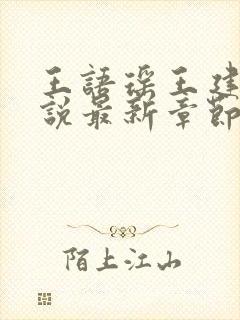 王語瑤王建
說最新章節
陌上江山